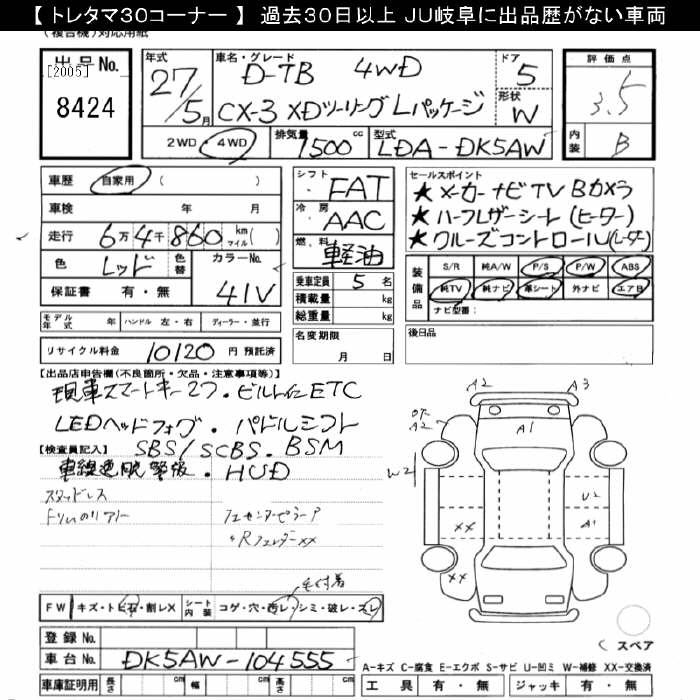 【 トレタマ30コーナー 】 過去30日以上 JU岐阜に出品歴がない車両
(複合機)対応用紙
出品No.
[2005]
8424
年式 27/5月
車名・グレード D-TB 4WD
CX-3 XDツーリングLパッケージ
ドア 5
形状 W
評価点 3.5
内装 B
2WD・4WD
排気量 1500 cc
型式 LDA-DK5AW
車歴 自家用 ( )
車検 年 月
走行 6万4千860 kmマイル( )
色 レッド 色替 カラーNo. 41V
保証書 有・無
モデル年式 年 ハンドル 左・右 ディーラー・並行
リサイクル料金 10120 円 預託済
シフト FAT
冷房 AAC
燃料 軽油
乗車定員 5 名
積載量 kg
総重量 kg
名変期限 月 日
セールスポイント
★ メーカーナビTV Bカメラ
★ ハーフレザーシート(ヒーター)
★ クルーズコントロール(レーダー)
装備品 S/R 純A/W P/S P/W ABS
純TV 純ナビ 革シート 外ナビ エアB
ナビ型番:
後日品
【出品店申告欄(不良箇所・欠品・注意事項等)】
現車スマートキー2ヶ・ビルトインETC
LEDヘッドフォグ・パドルシフト
【検査員記入】
SBS/SCBS・BSM
車線逸脱警報・HUD
スタッドレス
A2 A3
A2 A1
W2 U2
XX A1
XX
FW キズ・トビ石・割レX シート内装 コゲ・穴・汚レ・シミ・破レ・スレ
毛付着
登録No.
車台No. DK5AW-104555
車庫証明用 長さ cm 幅 cm 高さ cm
スペア
A-キズ C-腐食 E-エクボ S-サビ U-凹ミ W-補修 XX-交換済
工具 有・無 ジャッキ 有・無